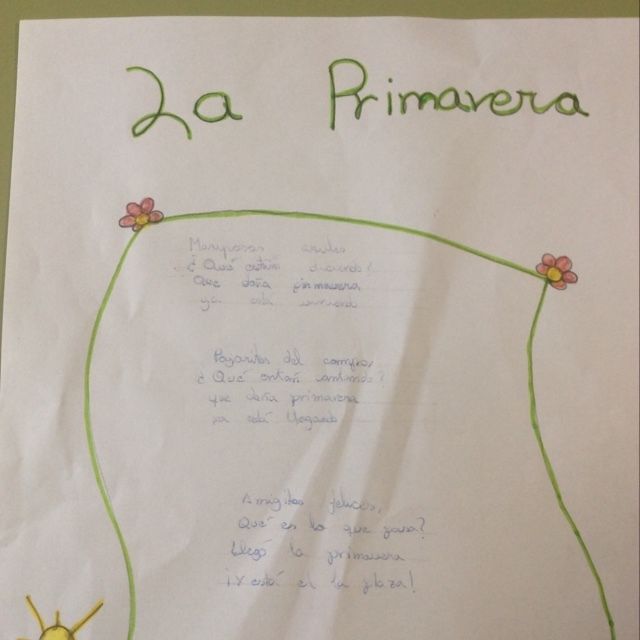 La Primavera
Mariposas azules
¿Qué están
Que doña primavera
ya está
Pajaritos del campo,
¿Qué están cantando?
que doña primavera
ya está llegando
Amigitos felices,
Qué es lo que pasa?
Llegó la primavera
¡Y está en la plaza!